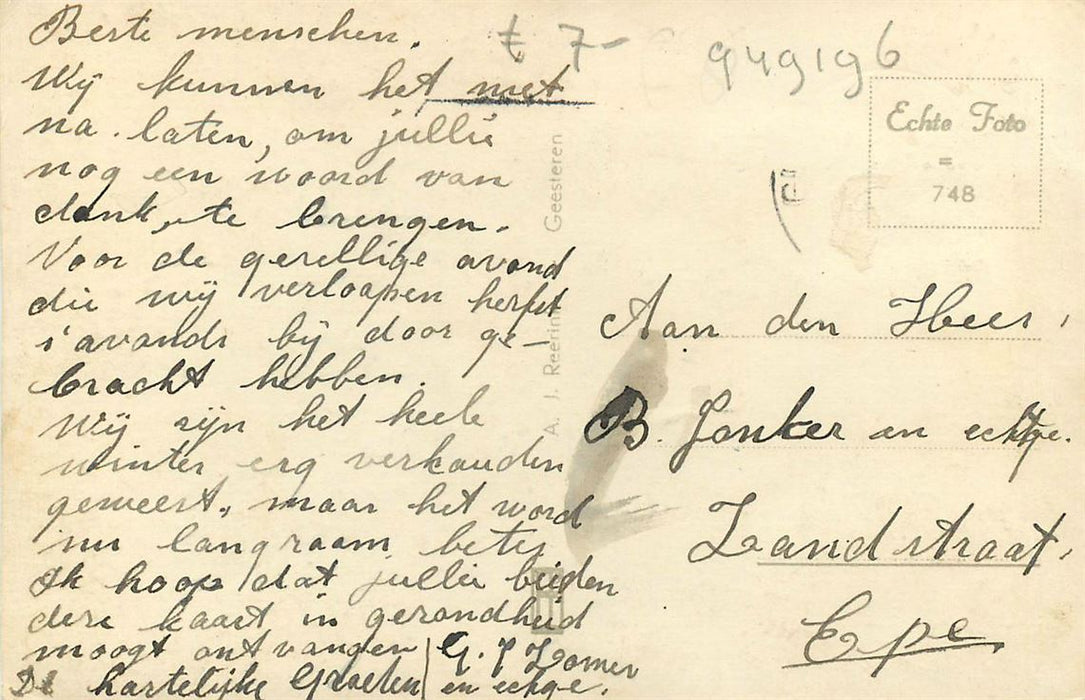 Beste menschen.
Wij kunnen het niet
na. laten, om jullie
nog een woord van
dank, te brengen.
Voor de gesellige avond
die wij verloopen herfst
s'avonds bij door ge-
bracht hebben.
Wij zijn het heele
winter erg verkouden
geweest, maar het word
nu langsaam beter
Ik hoop dat jullie beiden
dese kaart in gesondheid
moogt ontvangen
De hartelijke Groeten
G. J Lomer
en echtge.
£ 7-
949196
Echte Foto
=
748
A. J. Reerink Geesteren
Aan den Heer,
B. Jonker en echtge.
Landstraat,
Epe.